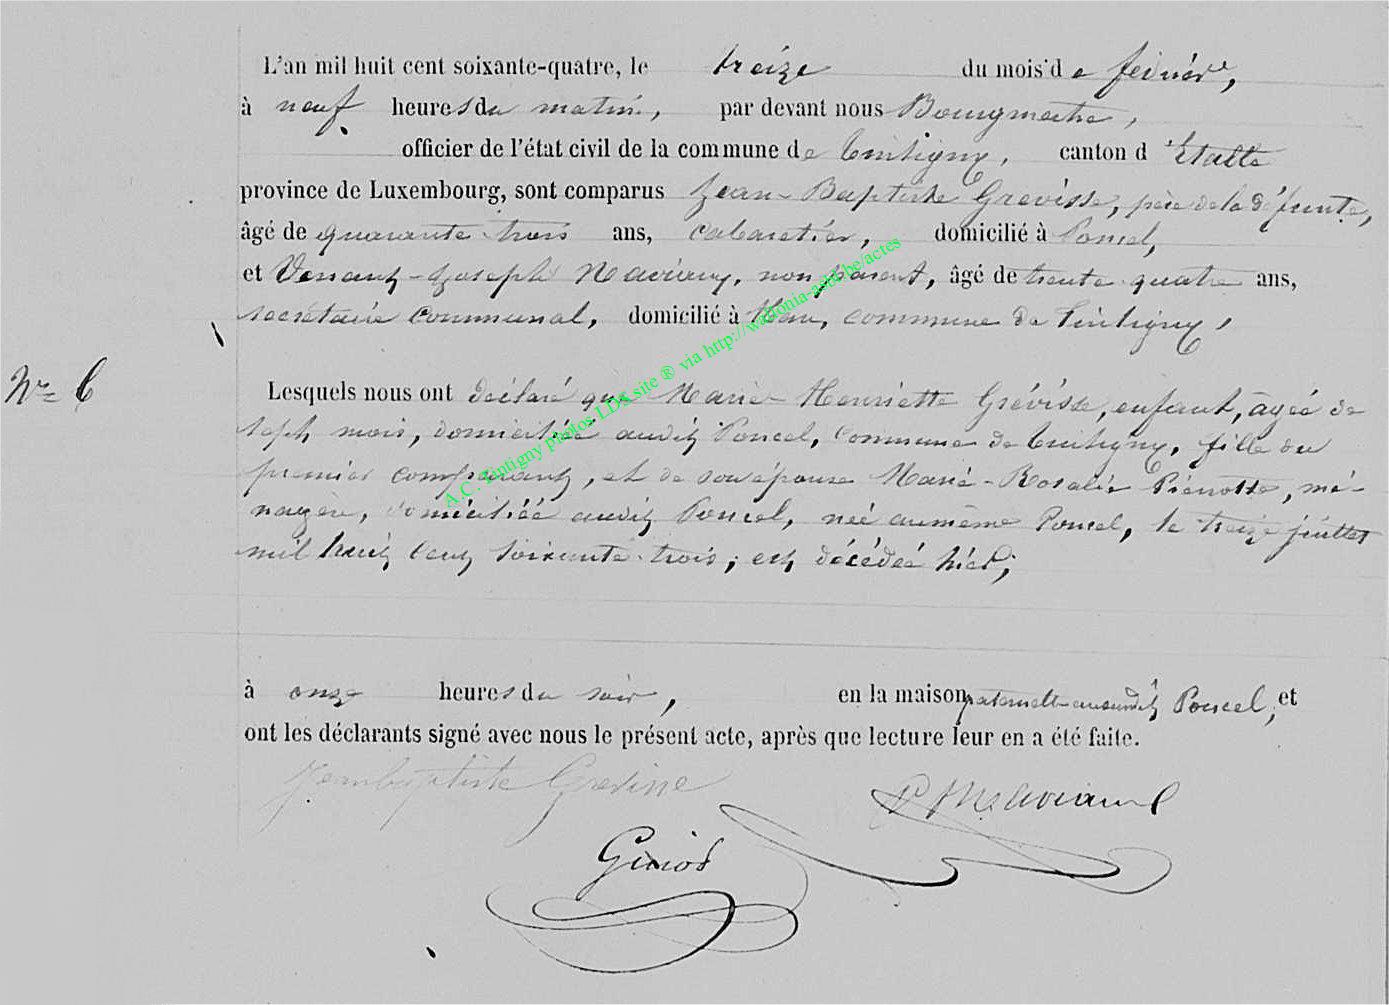 L'an mil huit cent soixante-quatre, le treize du mois de février,
à neuf heures du matin, par devant nous Bourgmestre,
officier de l'état civil de la commune de Tintigny, canton d'Etalle
province de Luxembourg, sont comparus Jean-Baptiste Grévisse, père de la défunte,
âgé de quarante trois ans, cabaretier, domicilié à Poncel,
et Joseph non parent, âgé de trente quatre ans,
secrétaire communal, domicilié à Han, commune de Tintigny,
N° 6
Lesquels nous ont déclaré que Marie-Henriette Grévisse, enfant, âgée de
sept mois, domiciliée audit Poncel, commune de Tintigny, fille du
premier comparant, et de son épouse Marie-Rosalie Pierrotte, mé-
nagère, domiciliée audit Poncel, née au même Poncel, le treize juillet
mil huit cent soixante-trois; est décédée hier;
à onze heures du soir, en la maison paternelle audit Poncel, et
ont les déclarants signé avec nous le présent acte, après que lecture leur en a été faite.
Jeanbaptiste Grevisse
A.C. Tintigny photos LDS site ® via http://wallonia-asbl.be/actes